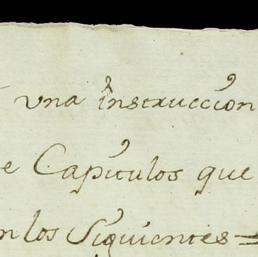 una instrucción
e Capítulos que
n los Siguientes=